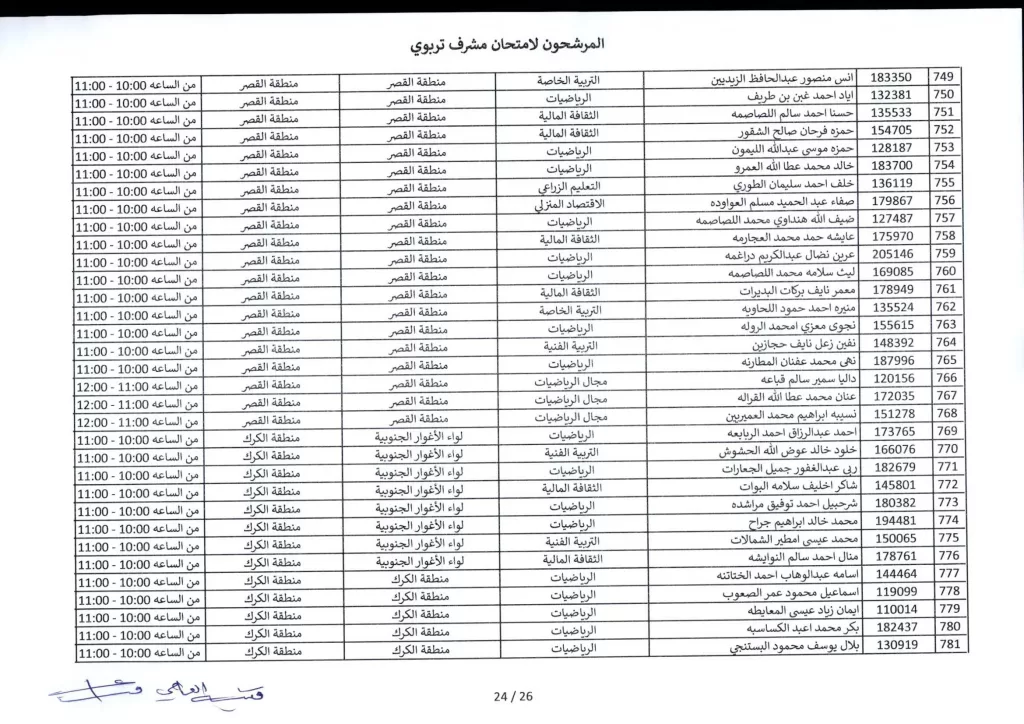 المرشحون لامتحان مشرف تربوي
749 183350 انس منصور عبدالحافظ الزيديين التربية الخاصة منطقة القصر منطقة القصر من الساعه 10:00 - 11:00
750 132381 اياد احمد غبن بن طريف الرياضيات منطقة القصر منطقة القصر من الساعه 10:00 - 11:00
751 135533 حسنا احمد سالم اللصاصمه الثقافة المالية منطقة القصر منطقة القصر من الساعه 10:00 - 11:00
752 154705 حمزه فرحان صالح الشقور الثقافة المالية منطقة القصر منطقة القصر من الساعه 10:00 - 11:00
753 128187 حمزه موسى عبدالله الليمون الرياضيات منطقة القصر منطقة القصر من الساعه 10:00 - 11:00
754 183700 خالد محمد عطا الله العمرو الرياضيات منطقة القصر منطقة القصر من الساعه 10:00 - 11:00
755 136119 خلف احمد سليمان الطوري التعليم الزراعي منطقة القصر منطقة القصر من الساعه 10:00 - 11:00
756 179867 صفاء عبد الحميد مسلم العواوده الاقتصاد المنزلي منطقة القصر منطقة القصر من الساعه 10:00 - 11:00
757 127487 ضيف الله هنداوي محمد اللصاصمه الرياضيات منطقة القصر منطقة القصر من الساعه 10:00 - 11:00
758 175970 عايشه حمد محمد العجارمه الثقافة المالية منطقة القصر منطقة القصر من الساعه 10:00 - 11:00
759 205146 عرين نضال عبدالكريم دراغمه الرياضيات منطقة القصر منطقة القصر من الساعه 10:00 - 11:00
760 169085 ليث سلامه محمد اللصاصمه الرياضيات منطقة القصر منطقة القصر من الساعه 10:00 - 11:00
761 178949 معمر نايف بركات البديرات الثقافة المالية منطقة القصر منطقة القصر من الساعه 10:00 - 11:00
762 135524 منيره احمد حمود اللحاويه التربية الخاصة منطقة القصر منطقة القصر من الساعه 10:00 - 11:00
763 155615 نجوى معزي امحمد الروله الرياضيات منطقة القصر منطقة القصر من الساعه 10:00 - 11:00
764 148392 نفين زعل نايف حجازين التربية الفنية منطقة القصر منطقة القصر من الساعه 10:00 - 11:00
765 187996 نهى محمد عفنان المطارنه الرياضيات منطقة القصر منطقة القصر من الساعه 10:00 - 11:00
766 120156 داليا سمير سالم قباعه مجال الرياضيات منطقة القصر منطقة القصر من الساعه 11:00 - 12:00
767 172035 عنان محمد عطا الله القراله مجال الرياضيات منطقة القصر منطقة القصر من الساعه 11:00 - 12:00
768 151278 نسيبه ابراهيم محمد العميريين مجال الرياضيات منطقة القصر منطقة القصر من الساعه 11:00 - 12:00
769 173765 احمد عبدالرزاق احمد الربابعه الرياضيات لواء الأغوار الجنوبية منطقة الكرك من الساعه 10:00 - 11:00
770 166076 خلود خالد عوض الله الحشوش التربية الفنية لواء الأغوار الجنوبية منطقة الكرك من الساعه 10:00 - 11:00
771 182679 ربى عبدالغفور جميل الجعارات الرياضيات لواء الأغوار الجنوبية منطقة الكرك من الساعه 10:00 - 11:00
772 145801 شاكر اخليف سلامه البوات الثقافة المالية لواء الأغوار الجنوبية منطقة الكرك من الساعه 10:00 - 11:00
773 180382 شرحبيل احمد توفيق مراشده الرياضيات لواء الأغوار الجنوبية منطقة الكرك من الساعه 10:00 - 11:00
774 194481 محمد خالد ابراهيم جراح الرياضيات لواء الأغوار الجنوبية منطقة الكرك من الساعه 10:00 - 11:00
775 150065 محمد عيسى امطير الشمالات التربية الفنية لواء الأغوار الجنوبية منطقة الكرك من الساعه 10:00 - 11:00
776 178761 منال احمد سالم النوايشه الثقافة المالية لواء الأغوار الجنوبية منطقة الكرك من الساعه 10:00 - 11:00
777 144464 اسامه عبدالوهاب احمد الختاتنه الرياضيات منطقة الكرك منطقة الكرك من الساعه 10:00 - 11:00
778 119099 اسماعيل محمود عمر الصعوب الرياضيات منطقة الكرك منطقة الكرك من الساعه 10:00 - 11:00
779 110014 ايمان زياد عيسى المعايطه الرياضيات منطقة الكرك منطقة الكرك من الساعه 10:00 - 11:00
780 182437 بكر محمد اعبد الكساسبه الرياضيات منطقة الكرك منطقة الكرك من الساعه 10:00 - 11:00
781 130919 بلال يوسف محمود البستنجي الرياضيات منطقة الكرك منطقة الكرك من الساعه 10:00 - 11:00
24 / 26